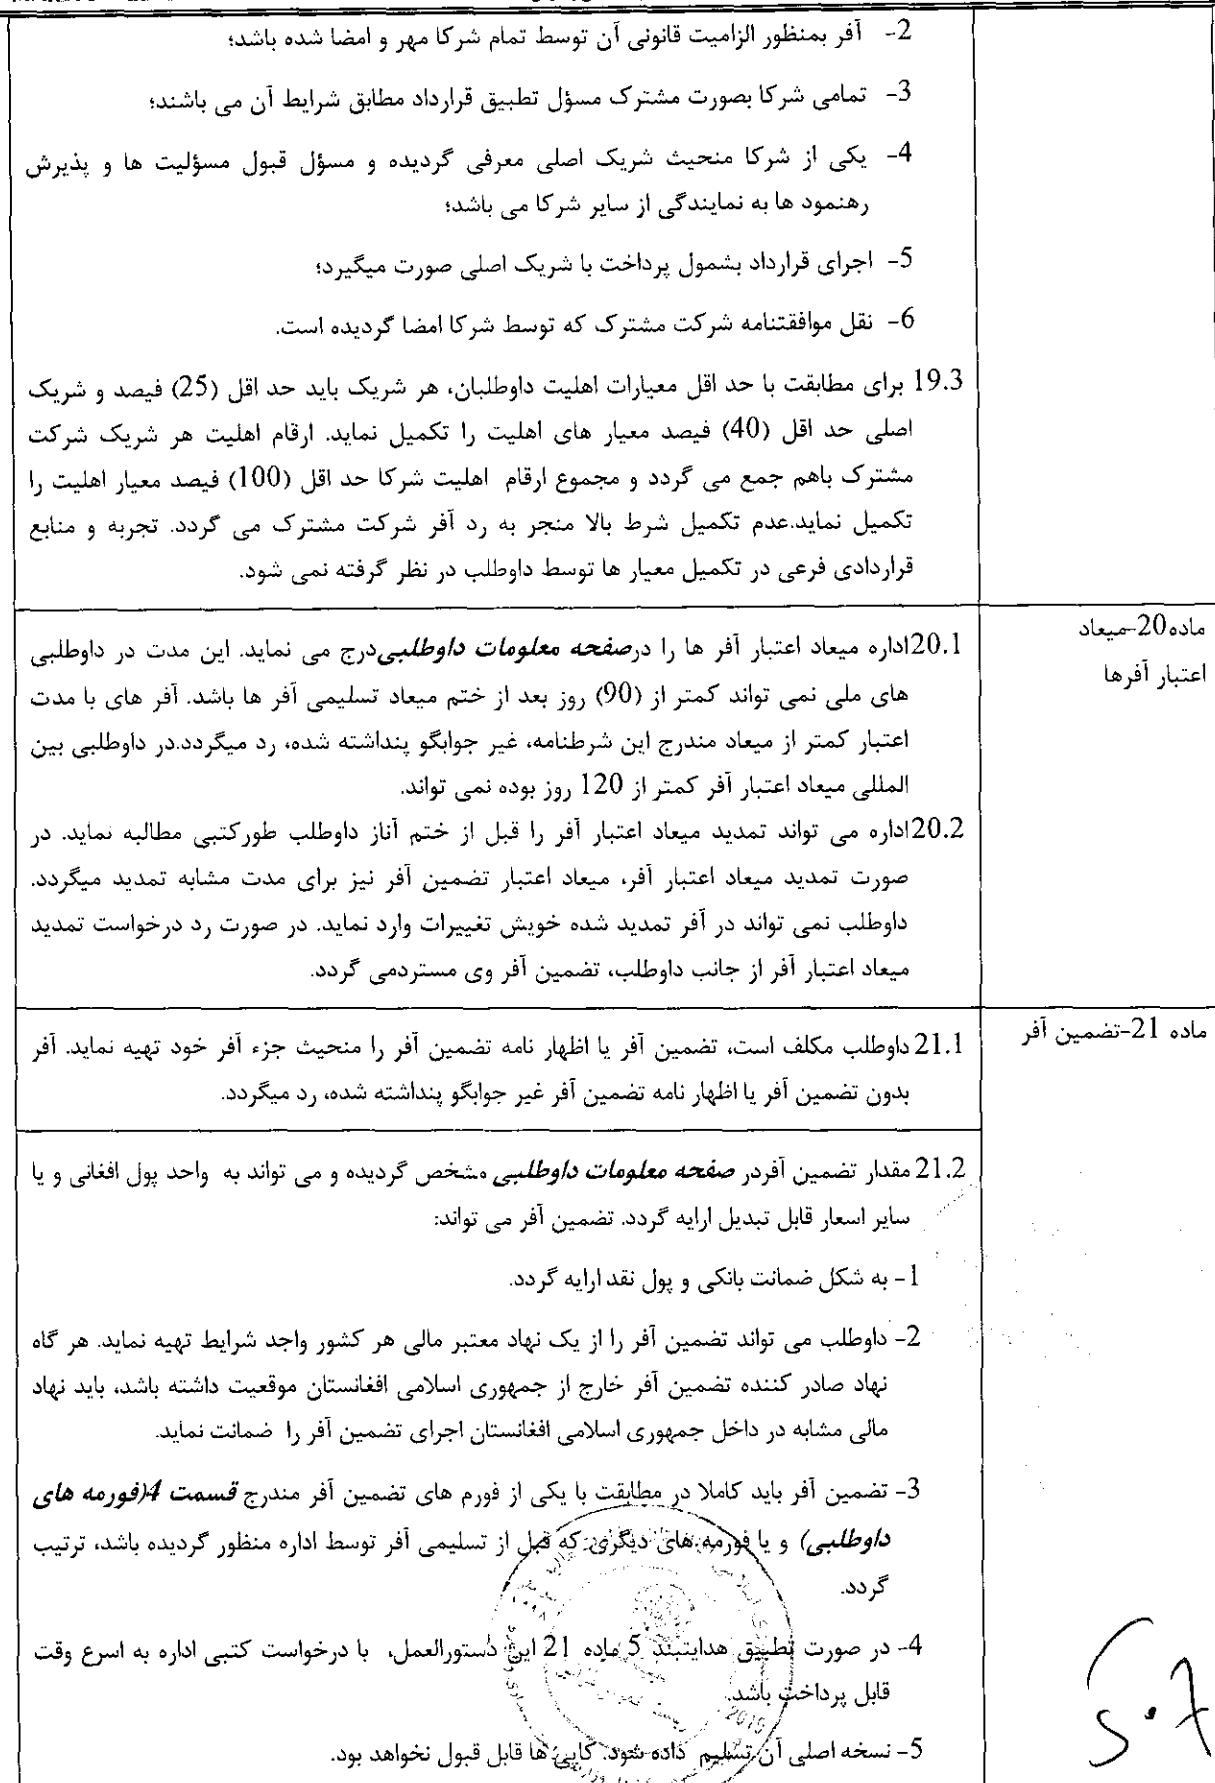 2- آفر بمنظور الزامیت قانونی آن توسط تمام شرکا مهر و امضا شده باشد؛
3- تمامی شرکا بصورت مشترک مسؤل تطبیق قرارداد مطابق شرایط آن می باشند؛
4- یکی از شرکا منحیث شریک اصلی معرفی گردیده و مسؤل قبول مسؤلیت ها و پذیرش
رهنمود ها به نمایندگی از سایر شرکا می باشد؛
5- اجرای قرارداد بشمول پرداخت با شریک اصلی صورت میگیرد؛
6- نقل موافقتنامه شرکت مشترک که توسط شرکا امضا گردیده است.
19.3 برای مطابقت با حد اقل معیارات اهلیت داوطلبان، هر شریک باید حد اقل (25) فیصد و شریک
اصلی حد اقل (40) فیصد معیار های اهلیت را تکمیل نماید. ارقام اهلیت هر شریک شرکت
مشترک باهم جمع می گردد و مجموع ارقام اهلیت شرکا حد اقل (100) فیصد معیار اهلیت را
تکمیل نماید.عدم تکمیل شرط بالا منجر به رد آفر شرکت مشترک می گردد. تجربه و منابع
قراردادی فرعی در تکمیل معیار ها توسط داوطلب در نظر گرفته نمی شود.
ماده20-میعاد
اعتبار آفرها
20.1اداره میعاد اعتبار آفر ها را درصفحه معلومات داوطلبیدرج می نماید. این مدت در داوطلبی
های ملی نمی تواند کمتر از (90) روز بعد از ختم میعاد تسلیمی آفر ها باشد. آفر های با مدت
اعتبار کمتر از میعاد مندرج این شرطنامه، غیر جوابگو پنداشته شده، رد میگردد.در داوطلبی بین
المللی میعاد اعتبار آفر کمتر از 120 روز بوده نمی تواند.
20.2اداره می تواند تمدید میعاد اعتبار آفر را قبل از ختم آناز داوطلب طورکتبی مطالبه نماید. در
صورت تمدید میعاد اعتبار آفر، میعاد اعتبار تضمین آفر نیز برای مدت مشابه تمدید میگردد.
داوطلب نمی تواند در آفر تمدید شده خویش تغییرات وارد نماید. در صورت رد درخواست تمدید
میعاد اعتبار آفر از جانب داوطلب، تضمین آفر وی مستردمی گردد.
ماده 21-تضمین آفر
21.1 داوطلب مکلف است، تضمین آفر یا اظهار نامه تضمین آفر را منحیث جزء آفر خود تهیه نماید. آفر
بدون تضمین آفر یا اظهار نامه تضمین آفر غیر جوابگو پنداشته شده، رد میگردد.
21.2 مقدار تضمین آفردر صفحه معلومات داوطلبی مشخص گردیده و می تواند به واحد پول افغانی و یا
سایر اسعار قابل تبدیل ارایه گردد. تضمین آفر می تواند:
1- به شکل ضمانت بانکی و پول نقد ارایه گردد.
2- داوطلب می تواند تضمین آفر را از یک نهاد معتبر مالی هر کشور واجد شرایط تهیه نماید. هر گاه
نهاد صادر کننده تضمین آفر خارج از جمهوری اسلامی افغانستان موقعیت داشته باشد، باید نهاد
مالی مشابه در داخل جمهوری اسلامی افغانستان اجرای تضمین آفر را ضمانت نماید.
3- تضمین آفر باید کاملا در مطابقت با یکی از فورم های تضمین آفر مندرج قسمت 4(فورمه های
داوطلبی) و یا فورمه های دیگری که قبل از تسلیمی آفر توسط اداره منظور گردیده باشد، ترتیب
گردد.
4- در صورت تطبیق هدایتبند 5 ماده 21 این دستورالعمل، با درخواست کتبی اداره به اسرع وقت
قابل پرداخت باشد.
5- نسخه اصلی آن تسلیم داده شود. کاپی ها قابل قبول نخواهد بود.